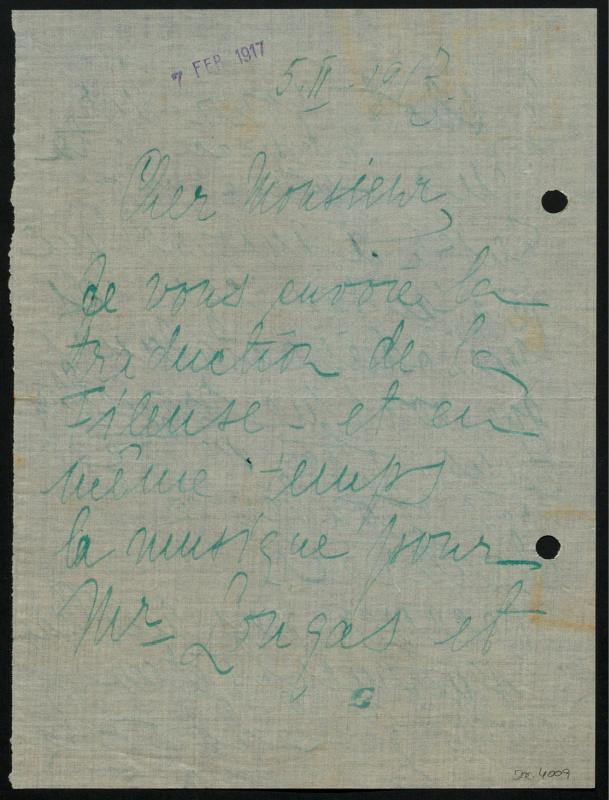 7 FEB 1917
5.II-1917
Cher Monsieur,
Je vous envoie la
traduction de la
Fileuse - et en
même temps
la musique pour
Mr Lougas et